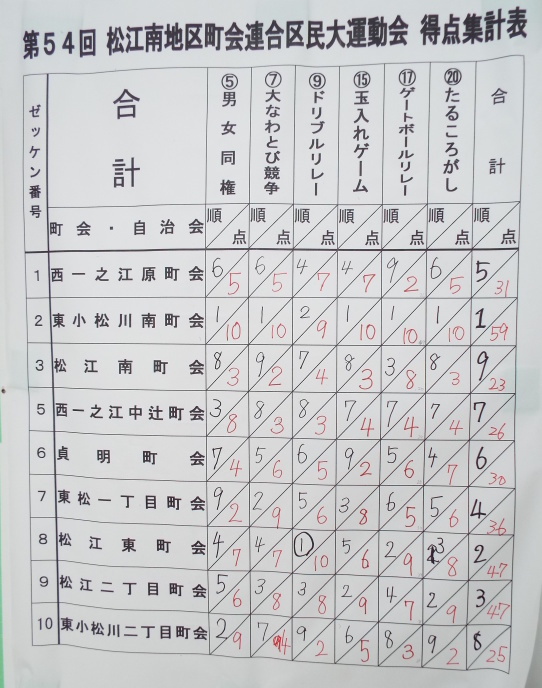 第54回 松江南地区町会連合区民大運動会 得点集計表
ゼッケン番号 合計 ⑤男女同権 ⑦大なわとび競争 ⑨ドリブルリレー ⑮玉入れゲーム ⑰ゲートボールリレー ⑳たるころがし 合計
町会・自治会 順 点 順 点 順 点 順 点 順 点 順 点 順 点
1 西一之江原町会 6 5 6 5 4 7 4 7 9 2 6 5 5 31
2 東小松川南町会 1 10 1 10 2 9 1 10 1 10 1 10 1 59
3 松江南町会 8 3 9 2 7 4 8 3 3 8 8 3 9 23
5 西一之江中辻町会 3 8 8 3 8 3 7 4 7 4 7 4 7 26
6 貞明町会 7 4 5 6 6 5 9 2 5 6 4 7 6 30
7 東松一丁目町会 9 2 2 9 5 6 3 8 6 5 5 6 4 36
8 松江東町会 4 7 4 7 1 10 5 6 2 9 3 8 2 47
9 松江二丁目町会 5 6 3 8 3 8 2 9 4 7 2 9 3 47
10 東小松川二丁目町会 2 9 7 4 9 2 6 5 8 3 9 2 8 25